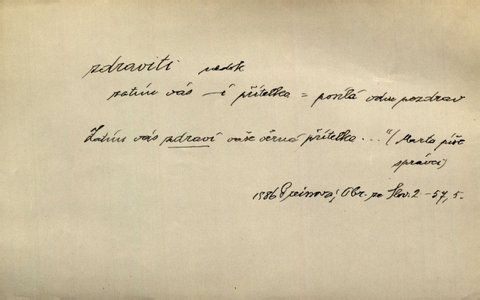 zdraviti nedok
zatím vás –í přítelka = posílá vám pozdrav
Zatím vás zdraví vaše věrná přítelka..." (Marta píše
správci)
1886 Preissová, Obr. ze Slov. 2 – 57, 5.